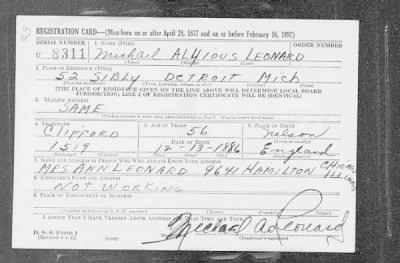 REGISTRATION CARD—(Men born on or after April 28, 1877 and on or before February 16, 1897)
SERIAL NUMBER 1. NAME (Print) ORDER NUMBER
U 8311 Michael ALYious LEONARD
2. PLACE OF RESIDENCE (Print)
52 SIBLY DETROIT Mich
[THE PLACE OF RESIDENCE GIVEN ON THE LINE ABOVE WILL DETERMINE LOCAL BOARD
JURISDICTION; LINE 2 OF REGISTRATION CERTIFICATE WILL BE IDENTICAL]
3. MAILING ADDRESS
SAME
4. TELEPHONE 5. AGE IN YEARS 6. PLACE OF BIRTH
CLIFFORD 56 Nelson
DATE OF BIRTH
1519 12-13-1886 England
7. NAME AND ADDRESS OF PERSON WHO WILL ALWAYS KNOW YOUR ADDRESS
MRS ANN LEONARD 9641 HAMILTON CHICAGO
8. EMPLOYER'S NAME AND ADDRESS
NOT WORKING
9. PLACE OF EMPLOYMENT OR BUSINESS
I AFFIRM THAT I HAVE VERIFIED ABOVE ANSWERS AND THAT THEY ARE TRUE.
D. S. S. Form 1
Michael A Leonard
(Registrant's signature)